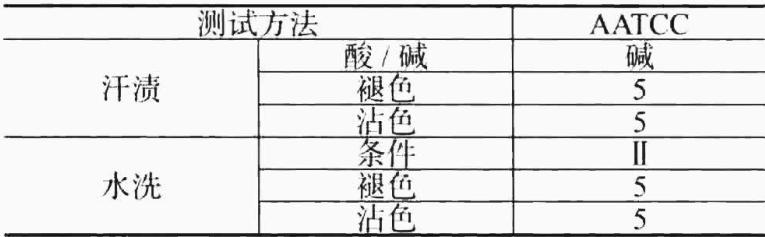 测试方法 AATCC
汗渍 酸 / 碱 碱
褪色 5
沾色 5
水洗 条件 Ⅱ
褪色 5
沾色 5